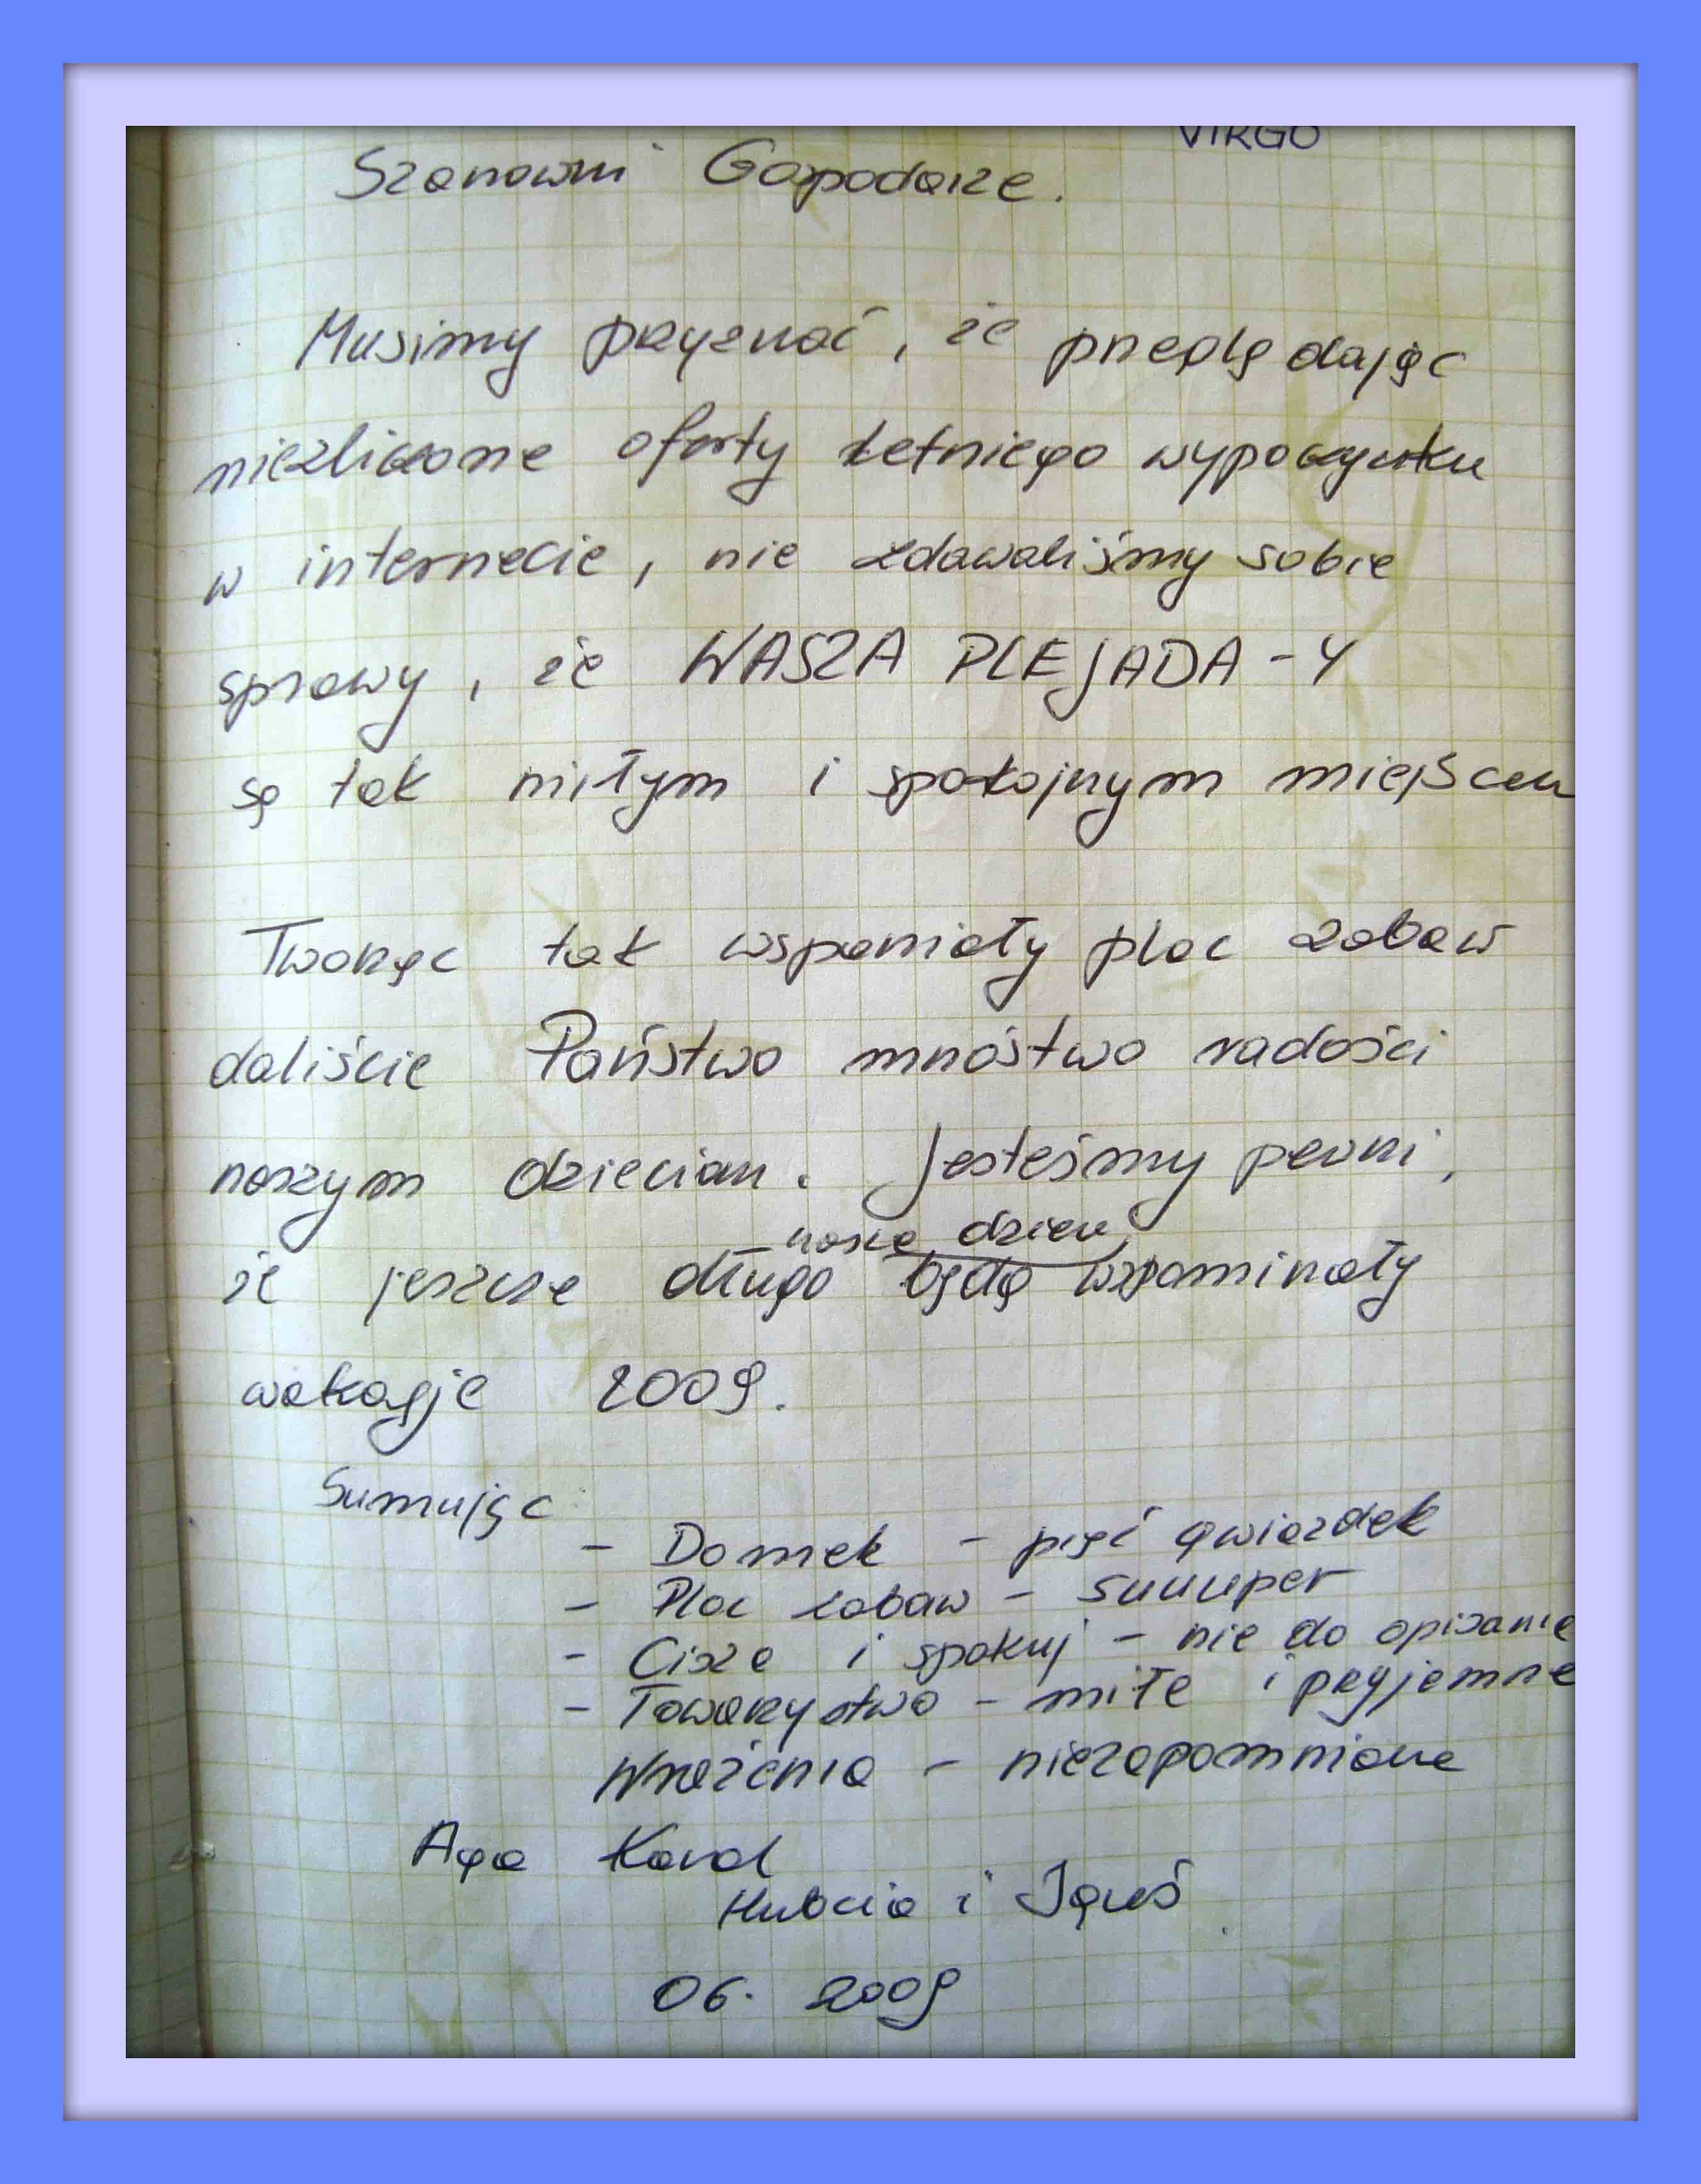 VIRGO
Szanowni Gospodarze.
Musimy przyznać, że przeglądając
niezliczone oferty letniego wypoczynku
w internecie, nie zdawaliśmy sobie
sprawy, że WASZA PLEJADA-Y
są tak miłym i spokojnym miejscem
Tworząc tak wspaniały plac zabaw
daliście Państwo mnóstwo radości
naszym dzieciom. Jesteśmy pewni,
że jeszcze długo nasze dzieci będą wspominały
wakacje 2009.
Sumując
- Domek - pięć gwiazdek
- Plac zabaw - suuuper
- Cisza i spokuj - nie do opisania
- Towarzystwo - miłe i przyjemne
Wrażenia - niezapomniane
Aga Karol
Hubcio i Iguś
06. 2009